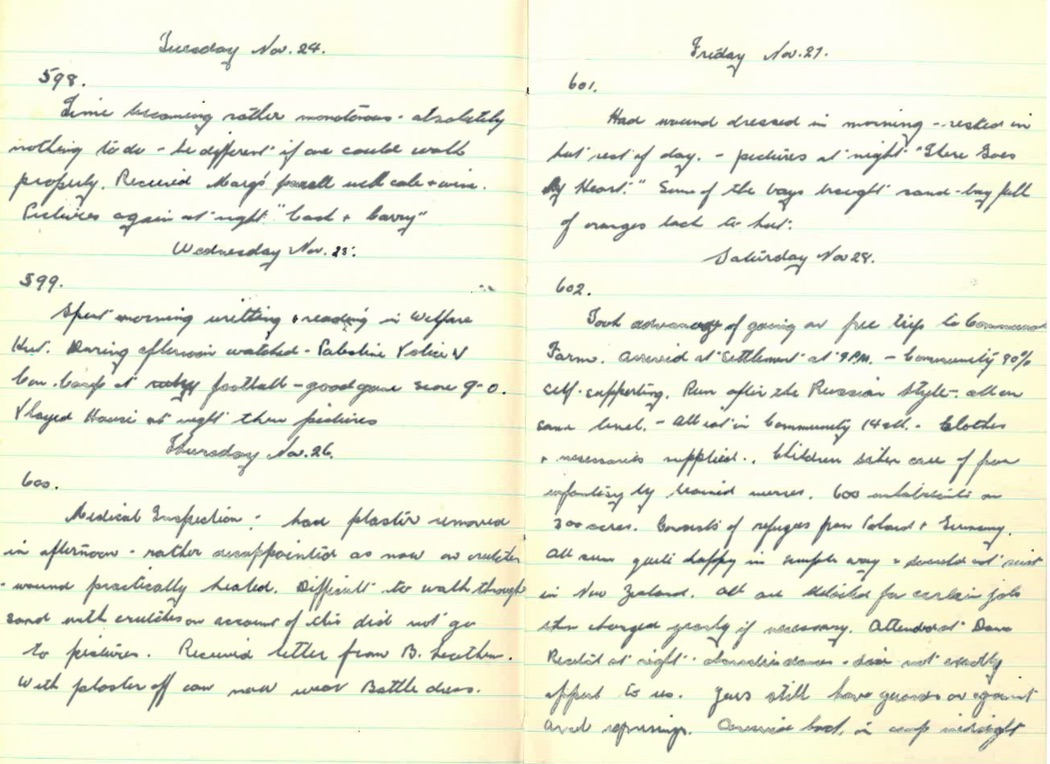 Tuesday Nov. 24.
598.
Time becoming rather monotonous - absolutely
nothing to do - be different if one could walk
properly. Received Marg's parcell with cake + wine.
Pictures again at night "Cash + Carry"
Wednesday Nov. 25.
599.
Spent morning writting + reading in Welfare
Hut. During afternoon watched - Palestine Police V
Con. Camp at rugby football - good game score 9-0.
Played House at night then pictures
Thursday Nov. 26.
600.
Medical Inspection - had plaster removed
in afternoon - rather disappointed as now on crutches
- wound practically healed. Difficult to walk through
sand with crutches on account of this did not go
to pictures. Received letter from B.
With plaster off can now wear Battle dress.
Friday Nov. 27.
601.
Had wound dressed in morning - rested in
hut rest of day. - pictures at night "There Goes
My Heart." Some of the boys brought sand-bag full
of oranges back to hut.
Saturday Nov 28.
602.
Took advantage of going on free trip to Communal
Farm. Arrived at settlement at 9 P.M. - Community 90%
self-supporting. Run after the Russian Style - all on
same level. - All eat in Community - Clothes
+ necessaries supplied. Children taken care of from
by trained nurses. 600 inhabitants on
300 acres. Consists of refugees from Poland + Germany.
All seem quite happy in simple way - would not
in New Zealand. All are detailed for certain jobs
then changed yearly if necessary. Attended Dance
Recital at night - dances - did not exactly
appeal to us. Jews still have guards on against
Arab uprisings. Arrived back in camp midnight